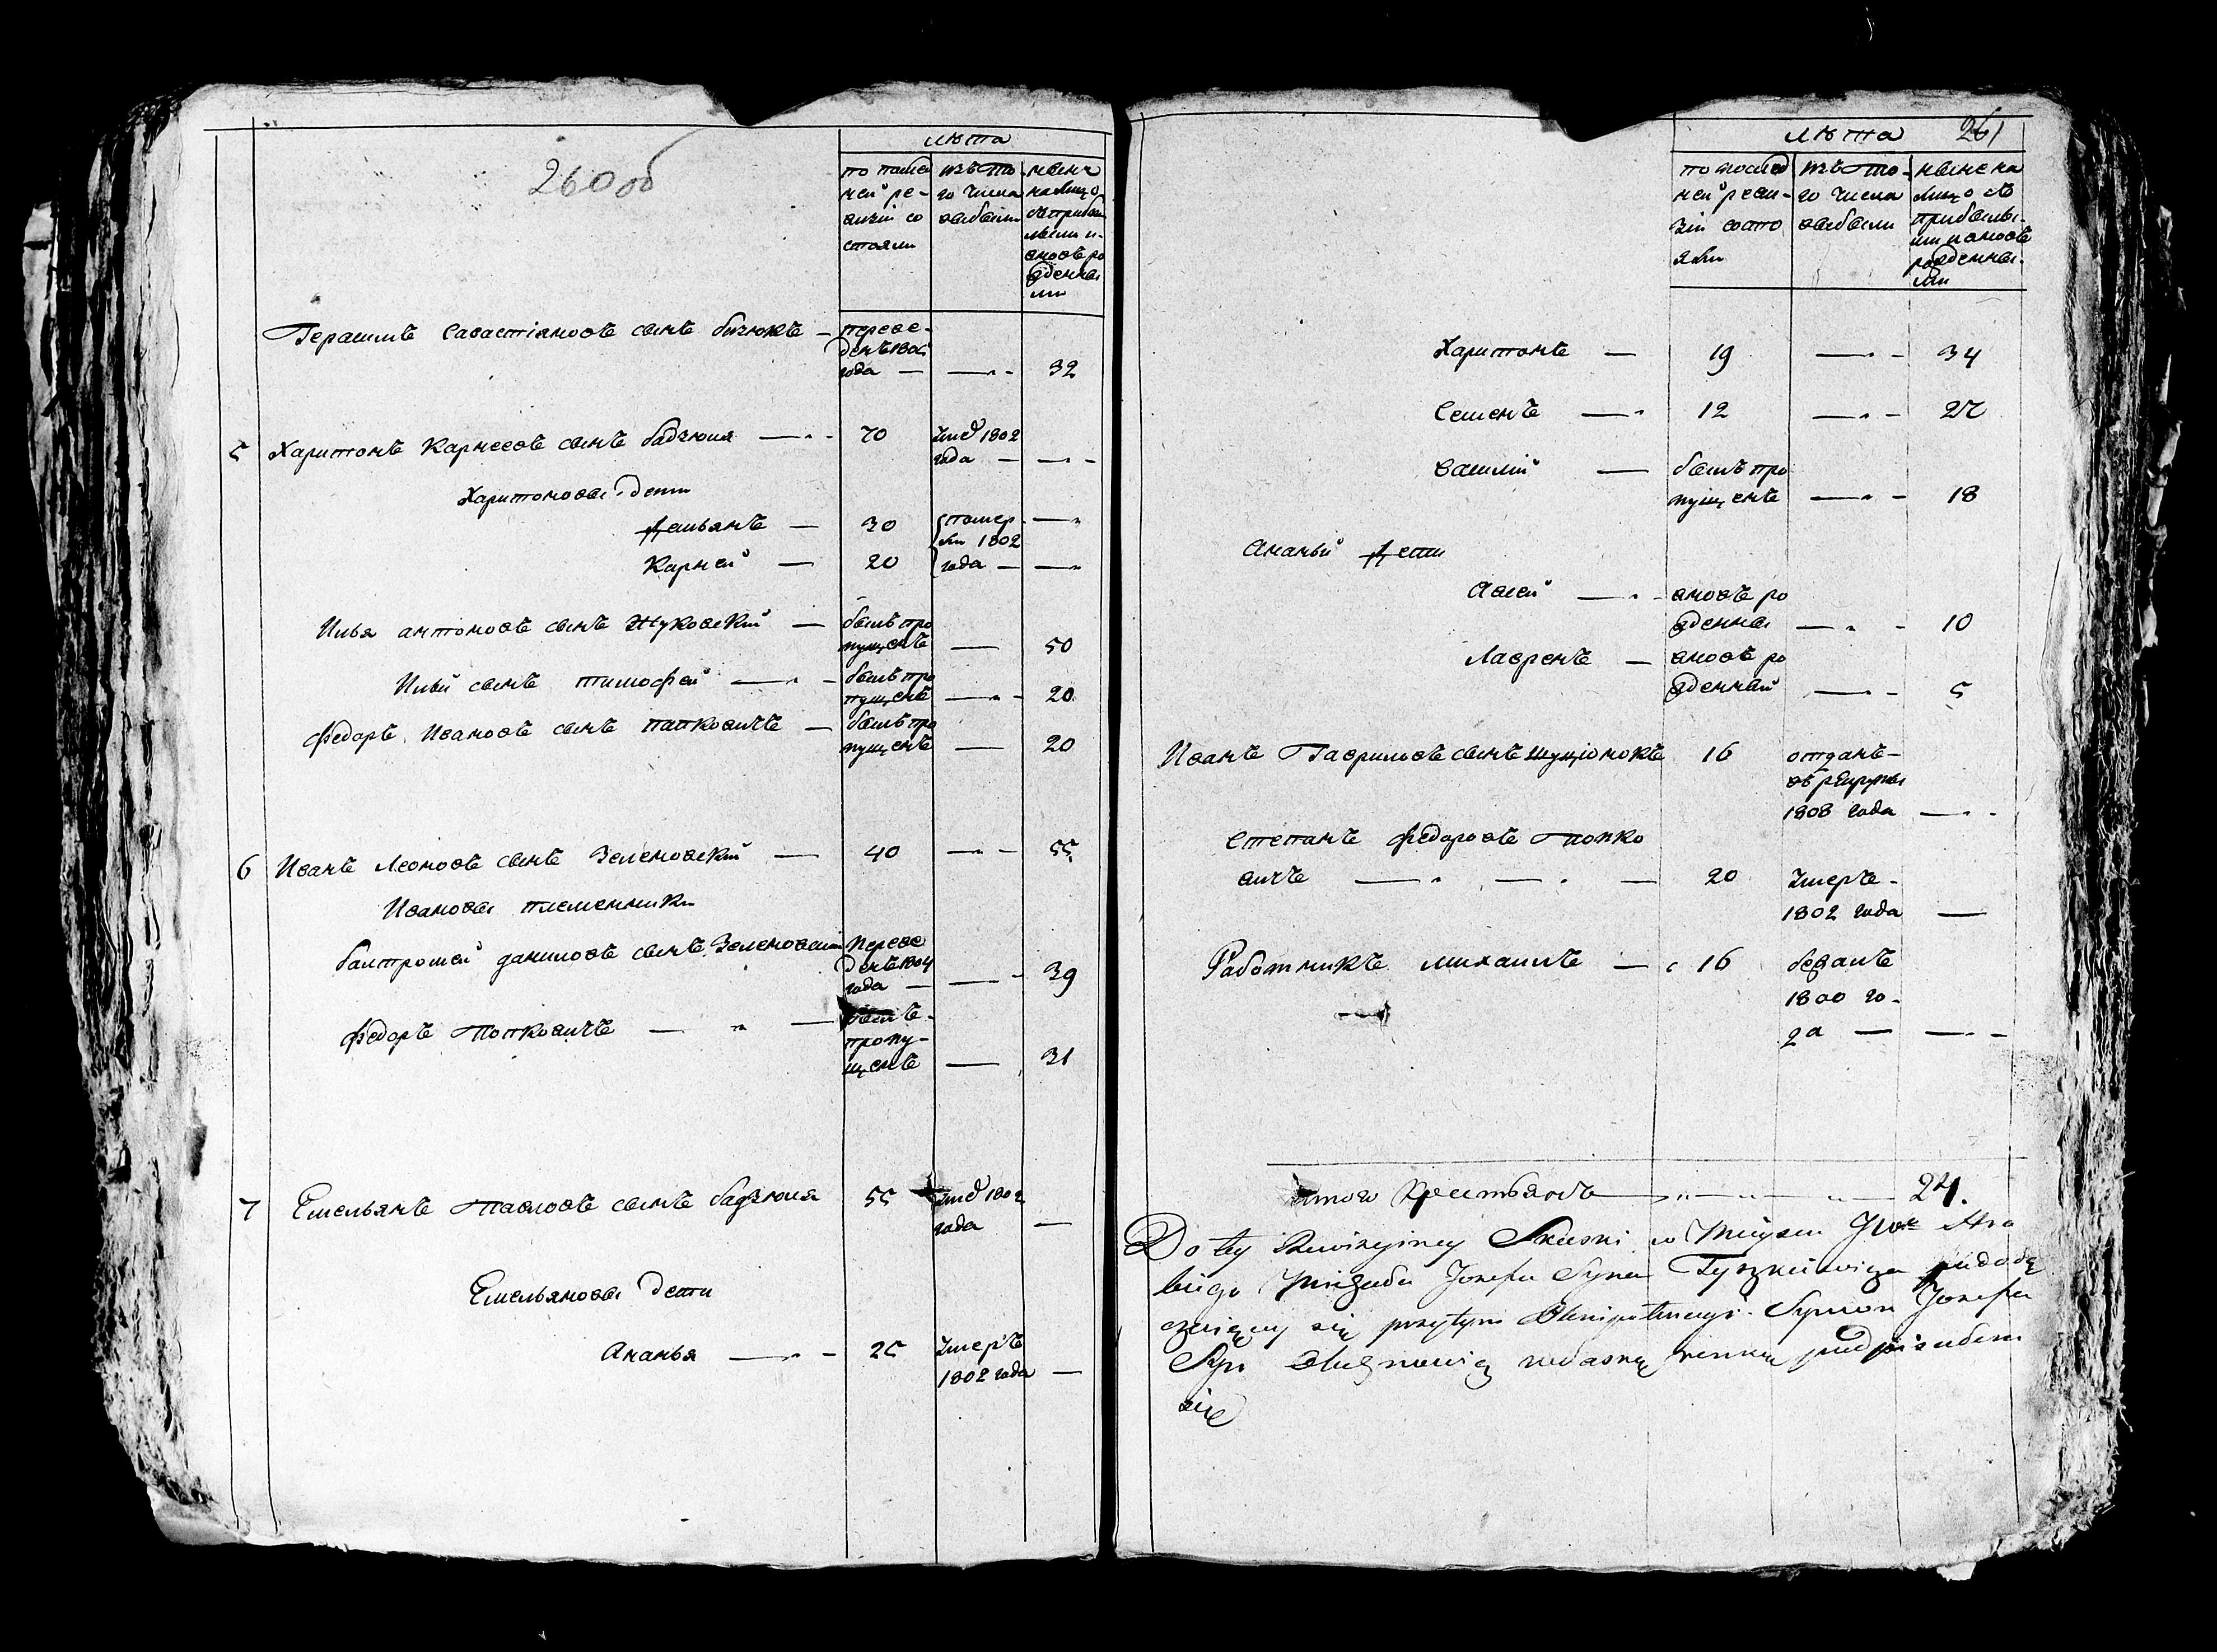 260 об
лѣта
по послед
ней ре-
визіи со
стояли
изъ то-
го числа
выбыли
ныне
на лицо
съ прибы
лыми и
вновь ро
жденны
ми
Герасимъ Савастіяновъ сынъ бизюкъ — переве-
денъ 180
года — — 32
5 Харитонъ Карнеевъ сынъ бадзюля — 70 Умер 1802
года — —
Харитоновы дети
Демьянъ — 30 помер- —
ли 1802
Карней — 20 года — —
Илья антоновъ сынъ Жуковскій — былъ про
пущенъ — 50
Ильи сынъ тимофей — былъ про
пущенъ — 20
Федоръ Ивановъ сынъ папковичъ — былъ про
пущенъ — 20
6 Иванъ Леоновъ сынъ Зеленовскій — 40 — 55
Ивановы племенники
балтромей даниловъ сынъ Зеленовскій Переве
денъ 1804
года — — 39
Федоръ Попковичъ — — былъ-
пропу-
щенъ — 31
7 Емельянъ Павловъ сынъ бадзюля 55 Умер 1802
года —
Емельяновы дети
Ананья — 25 Умеръ
1802 года —
261
лѣта
по послед
ней реви-
зіи состо
яли
изъ то-
го числа
выбыли
ныне на
лицо съ
прибылы-
ми и вновь
рожденны-
ми
Харитонъ — 19 — 34
Семенъ — 12 — 27
Василій — былъ про
пущенъ — 18
Ананьи Дети
Авсей — вновь ро
жденны — 10
Лавренъ — вновь ро
жденный — 5
Иванъ Гавриловъ сынъ шущонокъ 16 отданъ-
въ рекруты
1808 года —
Степанъ Федоровъ Попко
вичъ — — — 20 Умеръ-
1802 года —
Работникъ михаилъ — 16 бежалъ
1800 го-
да — —
Итого Крестьянъ — 24.
Do tey Rewizyiney Skaski w Mieysu JW Hra
biego Josefa Syna Tyszkiewicza
się przytym Plenipotencyi Symon Josefa
Syn własną renką podpisałem
się